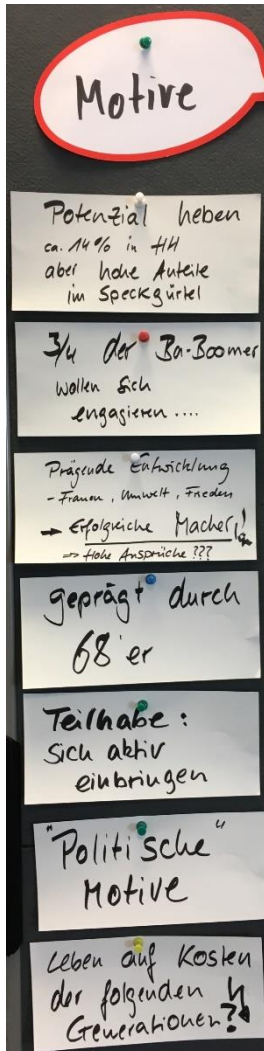 Motive
Potenzial heben
ca. 14% in HH
aber hohe Anteile
im Speckgürtel
3/4 der Ba-Boomer
wollen sich
engagieren ....
Prägende Entwicklung
- Frauen, Umwelt, Frieden
→ Erfolgreiche Macher!
⇒ Hohe Ansprüche ???
geprägt durch
68'er
Teilhabe:
Sich aktiv
einbringen
"Politische"
Motive
Leben auf Kosten
der folgenden
Generationen?